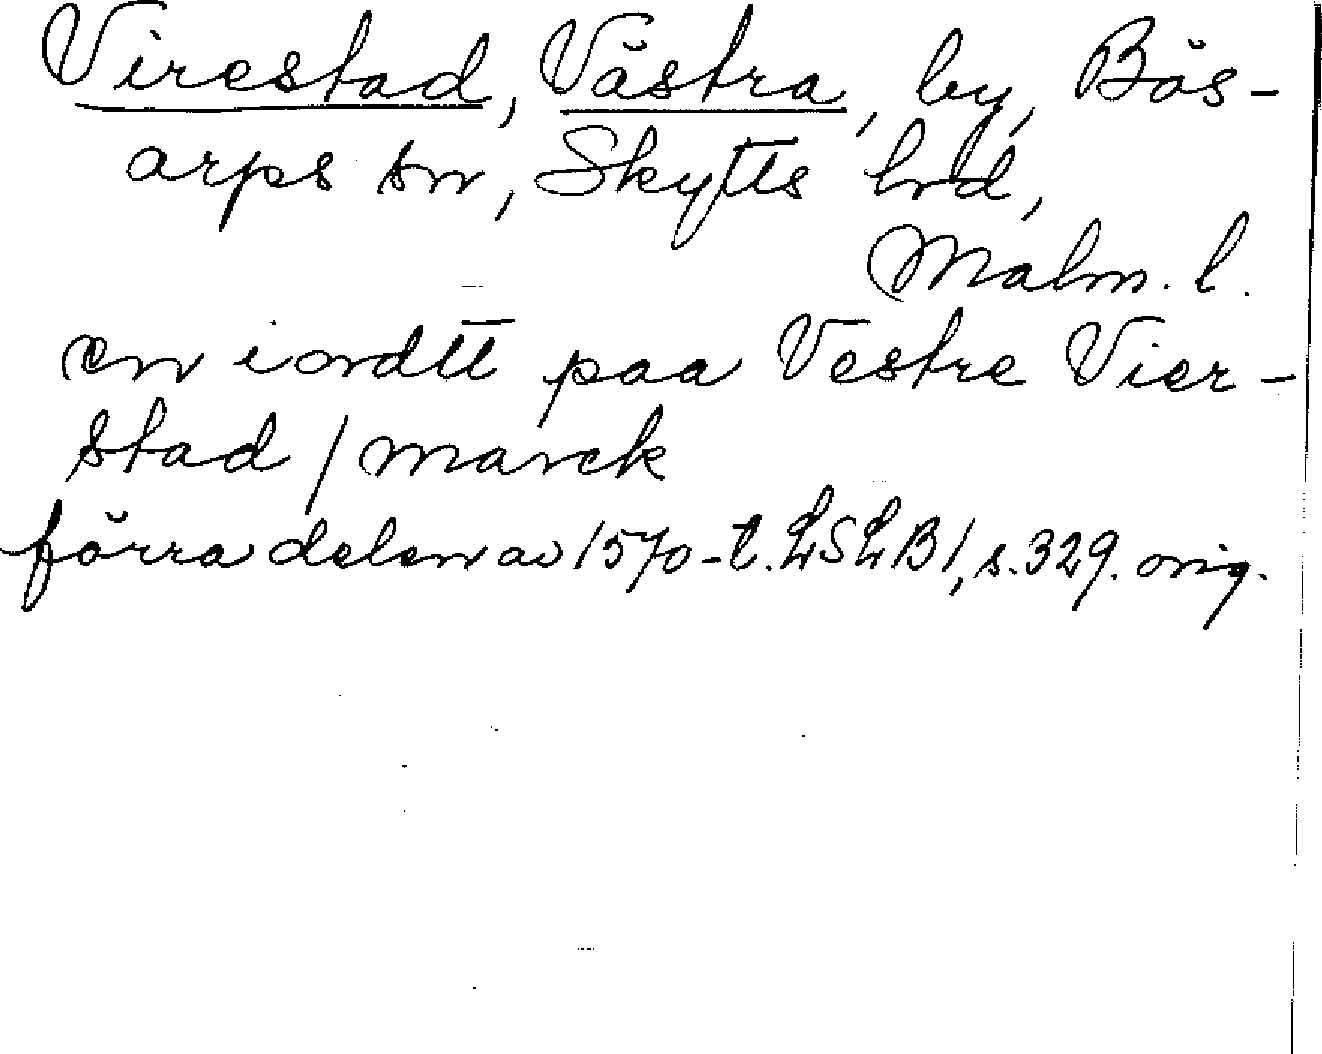 Virestad, Västra, by, Bös-
arps sn, Skytts hrd,
Malm. l.
en iordtt paa Vestre Vier-
stad / marck
förra delen av 1570-t. LSLB1, s. 329. orig.